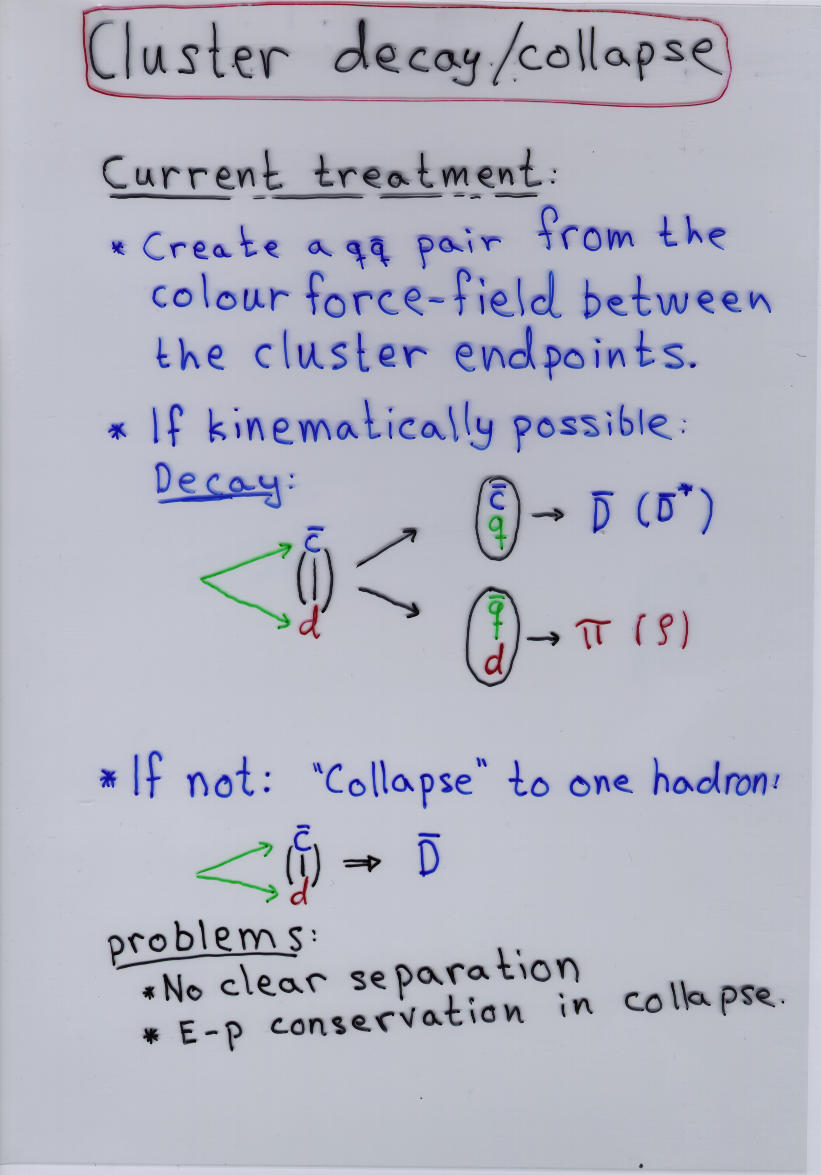 Cluster decay/collapse
Current treatment:
* Create a qq̄ pair from the
colour force-field between
the cluster endpoints.
* If kinematically possible:
Decay:
c̄
d
c̄
q
→ D̄ (D̄*)
q̄
d
→ π (ρ)
* If not: "Collapse" to one hadron:
c̄
d
⇒ D̄
problems:
* No clear separation
* E-p conservation in collapse.